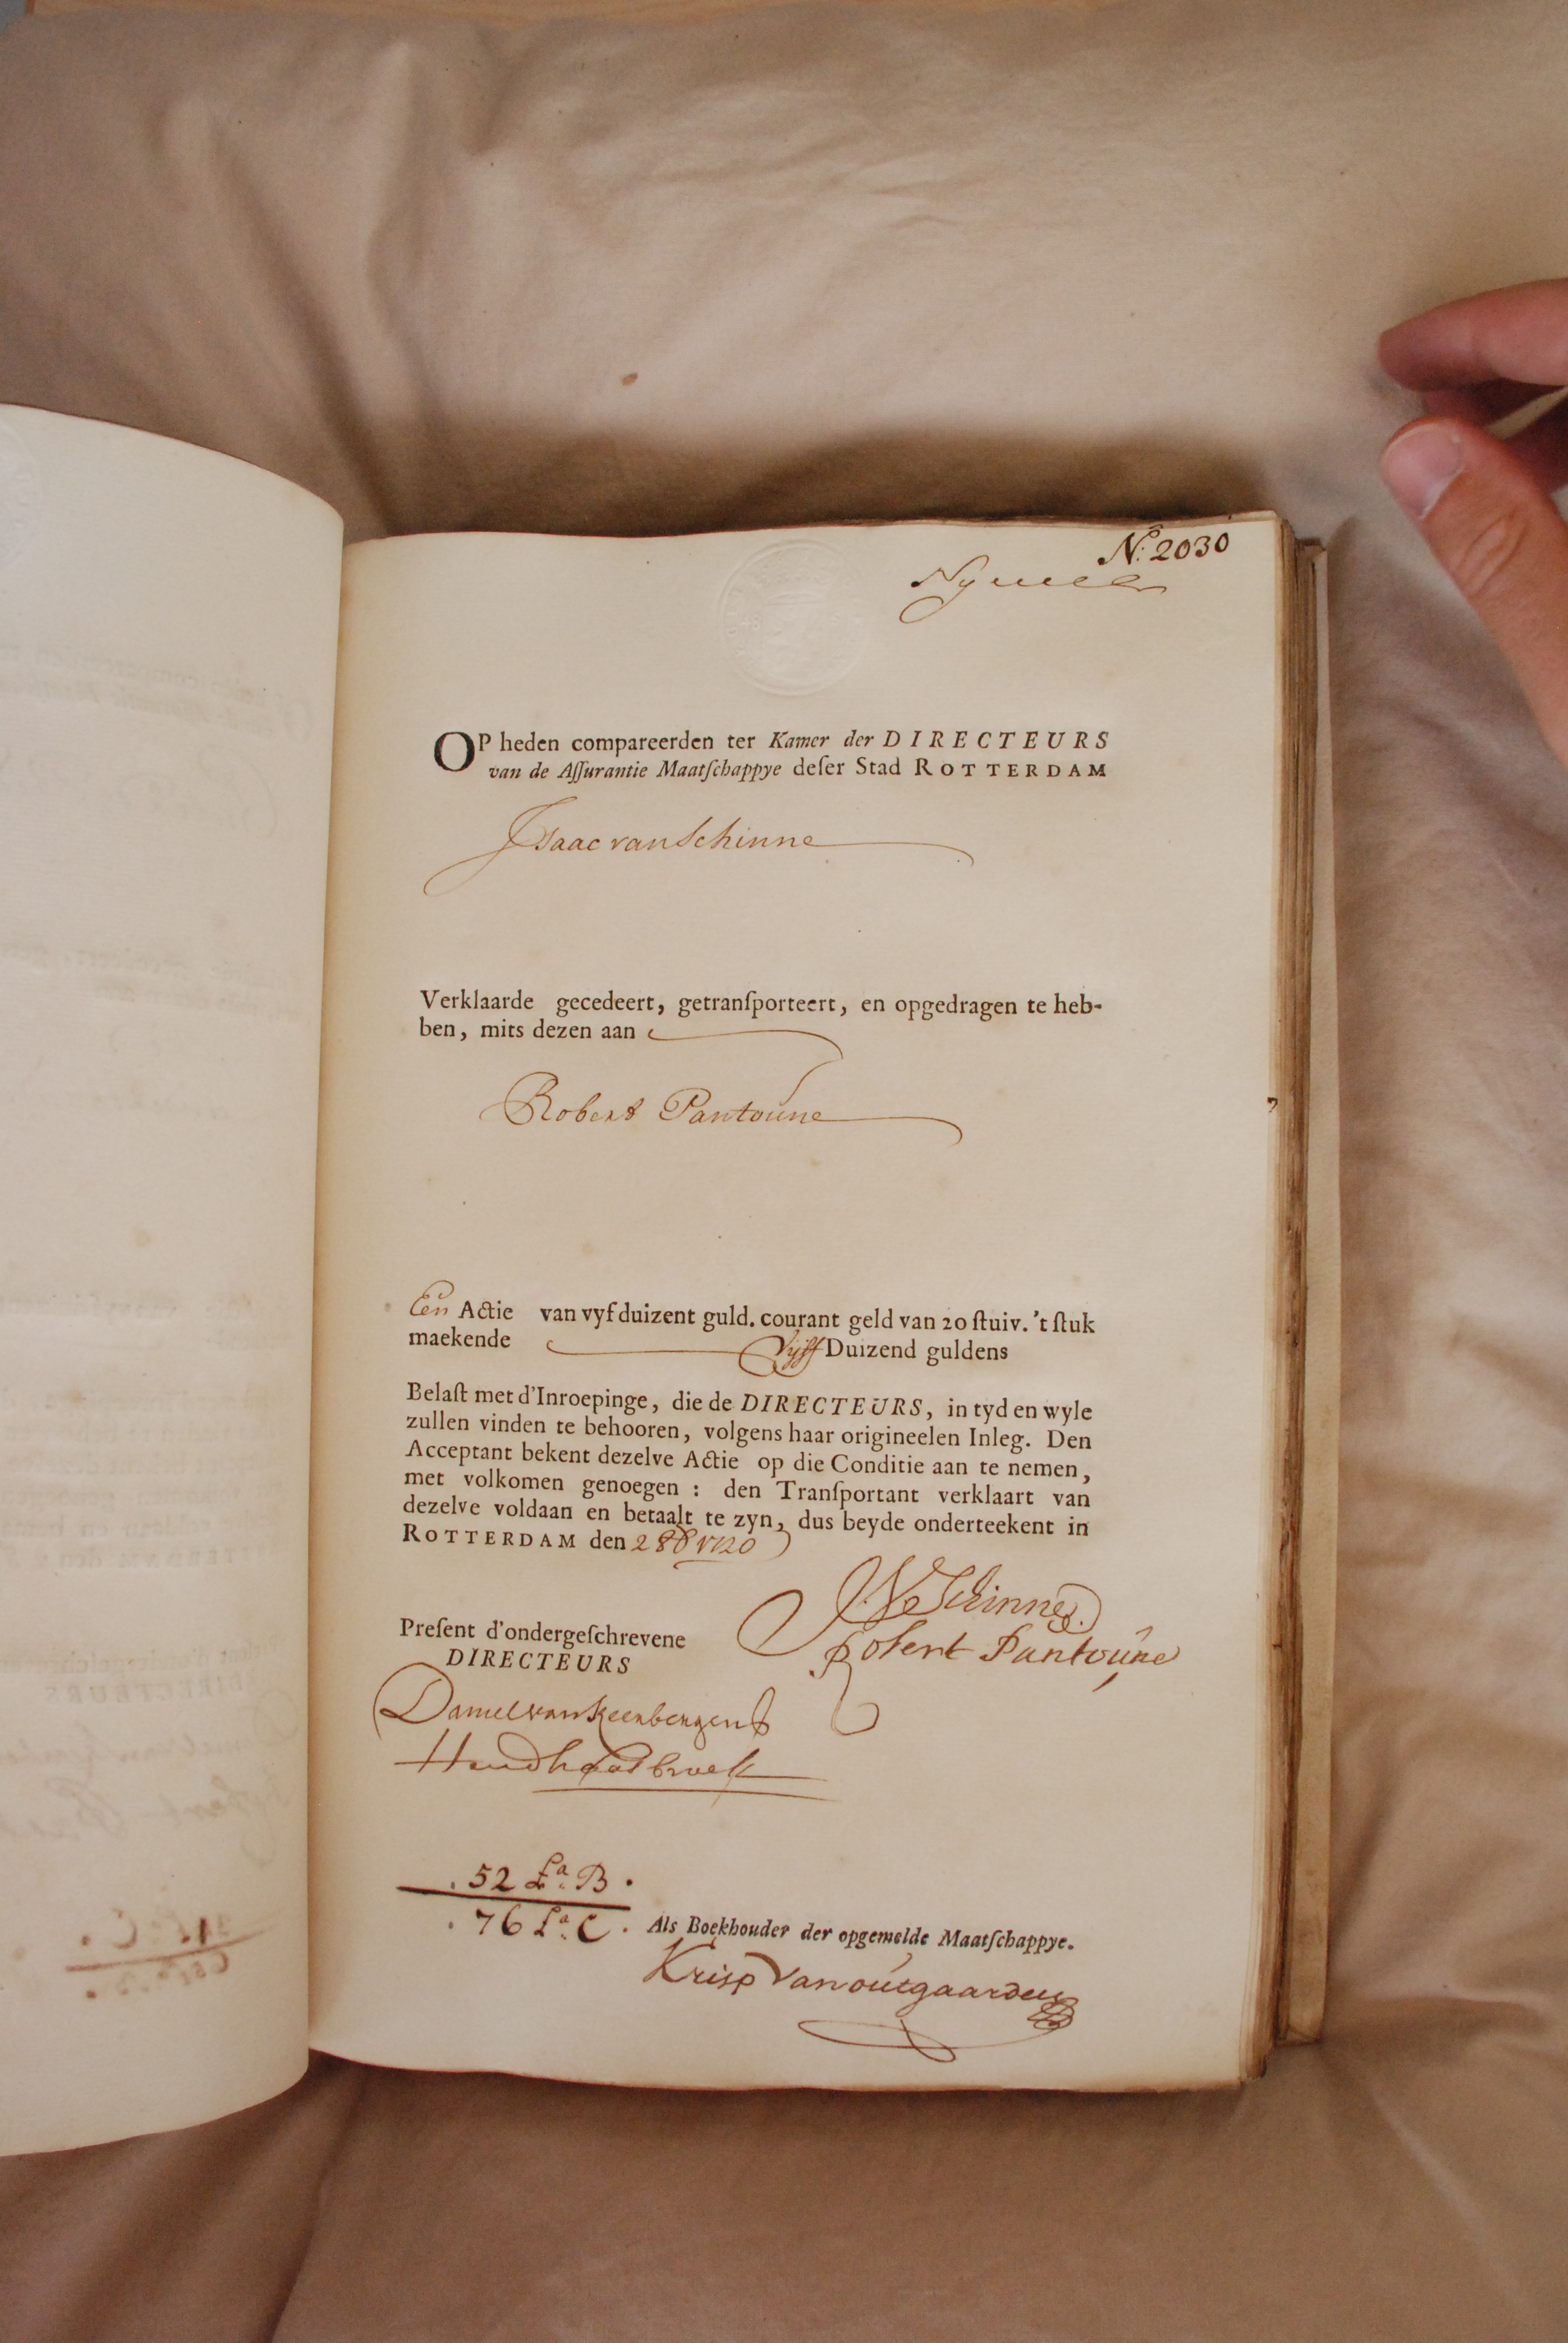 No: 2030
OP heden compareerden ter Kamer der DIRECTEURS
van de Aſſurantie Maatſchappye deſer Stad ROTTERDAM
Isaac van Schinne
Verklaarde gecedeert, getranſporteert, en opgedragen te heb-
ben, mits dezen aan
Robert Pantoune
Een Actie van vyf duizent guld. courant geld van 20 ſtuiv. 't ſtuk
maekende Vijff Duizend guldens
Belaſt met d'Inroepinge, die de DIRECTEURS, in tyd en wyle
zullen vinden te behooren, volgens haar origineelen Inleg. Den
Acceptant bekent dezelve Actie op die Conditie aan te nemen,
met volkomen genoegen : den Tranſportant verklaart van
dezelve voldaan en betaalt te zyn, dus beyde onderteekent in
ROTTERDAM den 28 1720
Schinne
Robert Pantoune
Preſent d'ondergeſchrevene
DIRECTEURS
Daniel van
52 La. B.
76 La. C.
Als Boekhouder der opgemelde Maatſchappye.
Krisp Van outgaarden